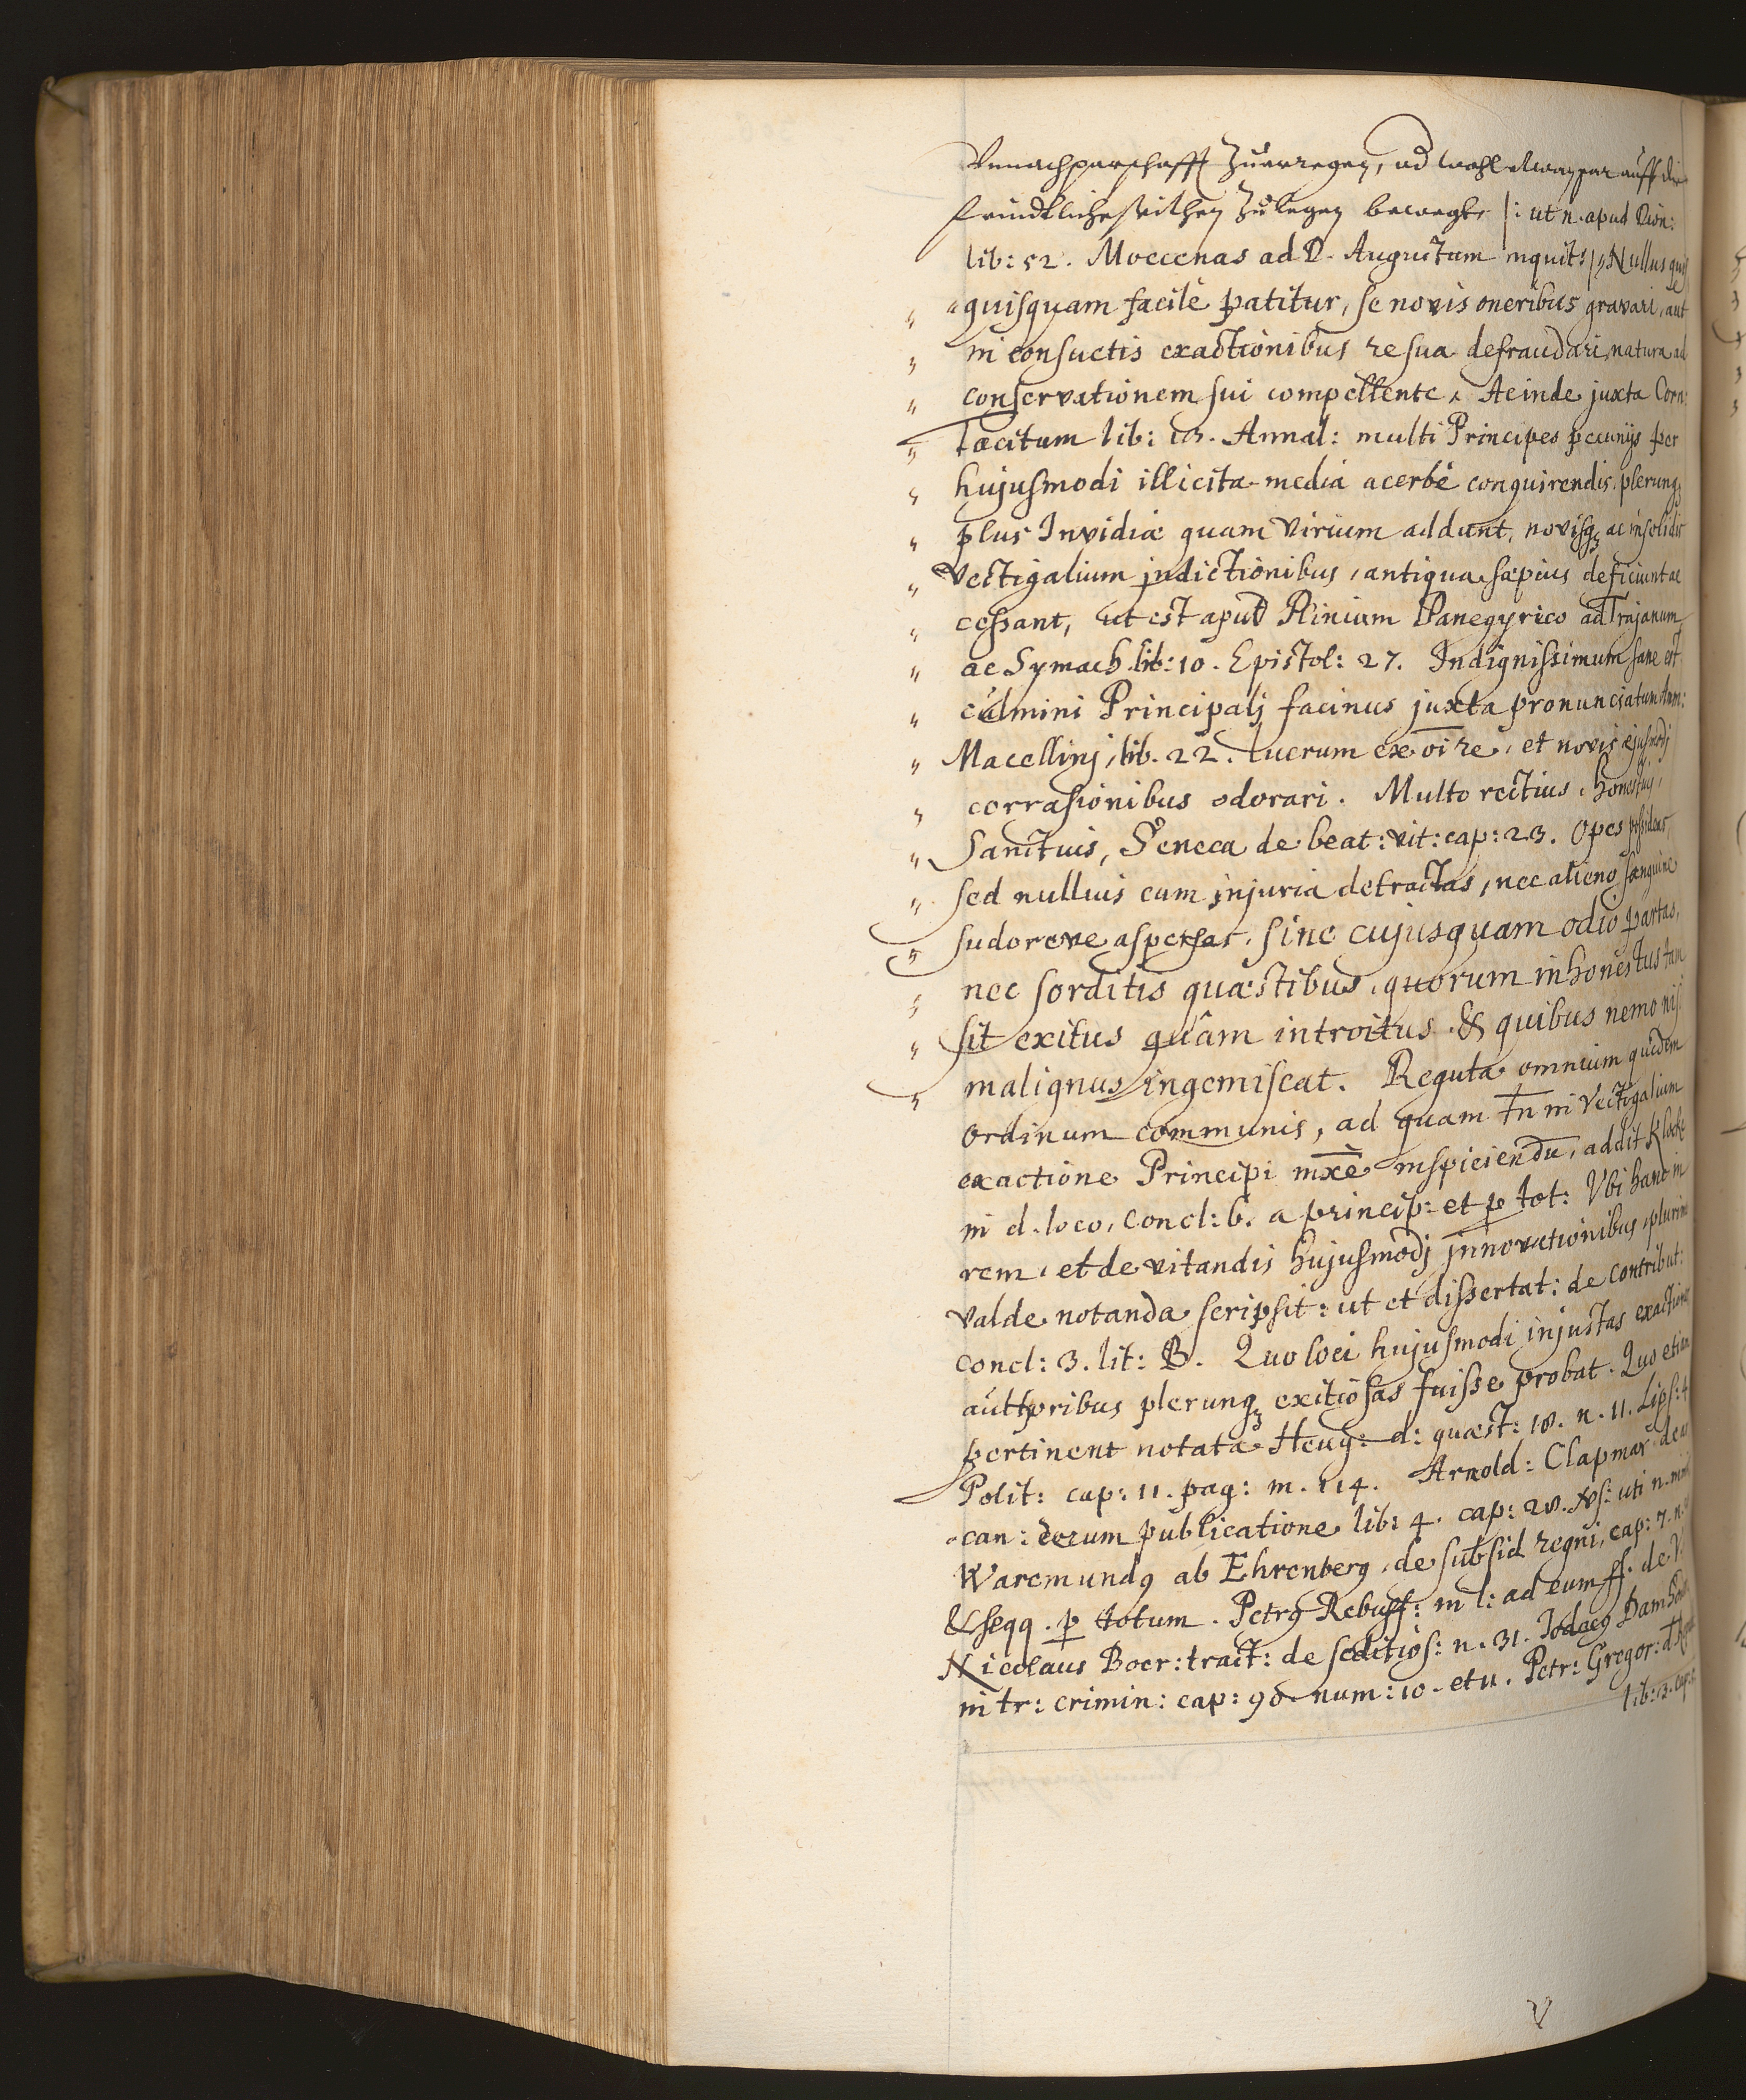 Vnnachparschafft Zuerregen, ud wohl etwan gar auff die
feindtliche seithen Zulegen bewegt, |: ut n. apud Dion:
lib: 52. Moecenas ad D. Augustum inquit: | Nullus quis
quisquam facilè patitur, se novis oneribus gravari, aut
in consuetis exactionibus re sua defraudari, natura ad
conservationem sui compellente, Ac inde juxta Corn:
Tacitum lib: 13. Annal: multi Principes pecunijs per
hujusmodi illicita media acerbè conquirendis, plerunq₃
plus Invidiæ quam virium addunt, novisq₃ ac insolitis
Vectigalium jndictionibus, antiqua sæpius deficiunt ac
cessant, ut est apud Plinium Panegyrico ad Trajanum
ac Symach. lib: 10. Epistol: 27. Indignissimum sane est
culmini Principalj facinus juxta pronunciatum Amm:
Macellinj, lib. 22. Lucrum ex oi re, et novis ejusmodj
corrasionibus odorari. Multo rectius, honestius,
Sanctius, Seneca de beat: vit: cap: 23. Opes possideas,
sed nullius cum jnjuria detractas, nec alieno sanguine
sudoreve aspersas, sine cujusquam odio partas,
nec sorditis quæstibus, quorum inhonestus tam
sit exitus quâm introitus & quibus nemo nisi
malignus ingemiscat. Regula omnium quidem
ordinum communis, ad quam tn in Vectigalium
exactione Principi mxè inspiciendu, addit Klock
in d. loco, concl: 6. a princip: et p tot: Vbi hanc in
rem, et de vitandis hujusmodj jnnovationibus, plurima
valde notanda scripsit: ut et dissertat: de contribut:
concl: 3. lit: B. Quo loci hujusmodi injustas exactiones
authoribus plerunq₃ exitiosas fuisse probat. Quo etiam
pertinent notata Heug: d: quæst: 18. n. 11. Lips: 4
Polit: cap: 11. pag: m. 114. Arnold: Clapmar de ar
can: rerum publicatione lib: 4. cap: 20. Vs: uti n.
Waremundꝰ ab Ehrenberg, de subsid regni, cap: 7. n.
& seqq. p totum. Petrꝰ Rebuff: in l: ad eum ff. de V.
Nicolaus Boer: tract: de seditios: n. 31. Jodocꝰ Damhoud
in tr: crimin: cap: 90. num: 10. et 11. Petr: Gregor: d. Repub
lib: 3. cap: